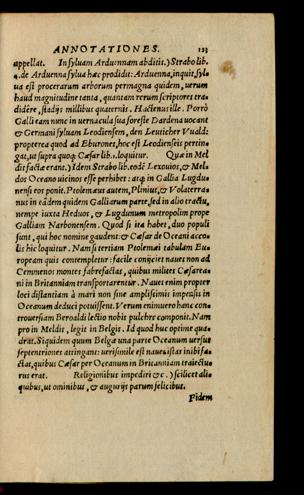 ANNOTATIONES. 123
appellat. In syluam Arduennam abditis.) Strabo lib.
4. de Arduenna sylua hæc prodidit: Arduenna, inquit, syl=
ua est procerarum arborum permagna quidem, uerum
haud magnitudine tanta, quantam rerum scriptores tra=
didêre, stadijs millibus quaternis. Hactenus ille. Porrò
Galli eam nunc in uernacula sua foreste Dardena uocant
& Germani syluam Leodiensem, den Leuticher Vuald:
propterea quod ad Eburones, hoc est Leodienseis pertin=
gat, ut supra quoq; Cæsar lib. loquitur. Quæ in Mel
dis factæ erant.) Idem Strabo lib. eodẽ Lexouios, & Mel=
dos Oceano uicinos esse perhibet: atq; in Gallia Lugdu=
nensi eos ponit. Ptolemæus autem, Plinius, & Volaterra=
nus in eâdem quidem Galliarum parte, sed in alio tractu,
nempe iuxta Heduos, & Lugdunum metropolim prope
Galliam Narbonensem. Quod si ita habet, duo populi
sunt, qui hoc nomine gaudent: & Cæsar de Oceani acco=
lis hîc loquitur. Nam si tertiam Ptolemæi tabulam Eu=
ropeam quis contempletur: facile conijciet naues non ad
Cemmenos montes fabrefactas, quibus milites Cæsarea=
ni in Britanniam transportarentur. Naues enim propter
loci distantiam à mari non sine amplissimis impensis in
Oceanum deduci potuissent. Verum enimuero hanc con=
trouersiam Beroaldi lectio nobis pulchre componit. Nam
pro in Meldis, legit in Belgis. Id quod huc optime qua=
drat. Siquidem quum Belgæ una parte Oceanum uersus
septentriones attingant: uerisimile est naues istas inibi fa=
ctas, quibus Cæsar per Oceanum in Britanniam traiectu=
rus erat. Religionibus impediri &c.) scilicet ali=
quibus, ut ominibus, & augurijs parum felicibus.
Fidem